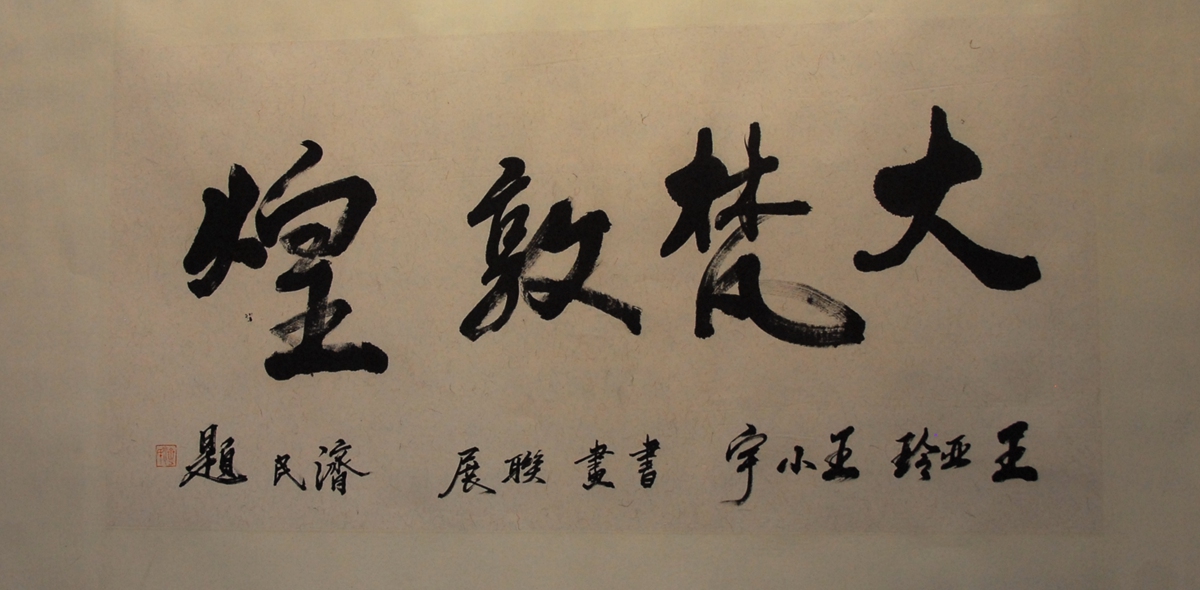 大梵敦煌
王亚玲 王小宇 書畫联展 濟民題